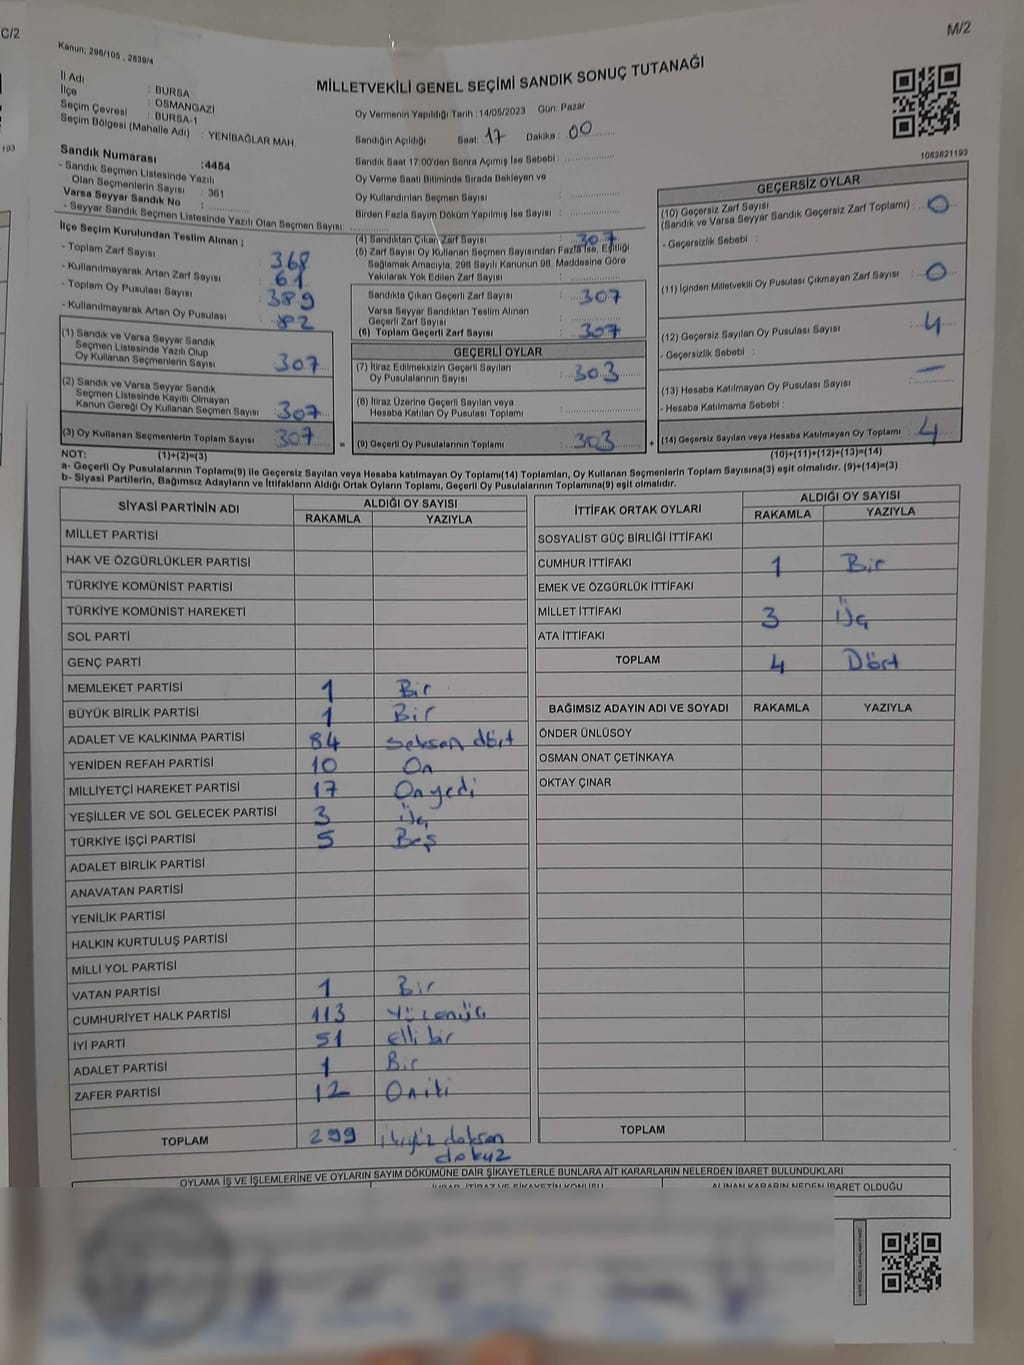 C/2
M/2
Kanun: 298/105 , 2839/4
MİLLETVEKİLİ GENEL SEÇİMİ SANDIK SONUÇ TUTANAĞI
İl Adı : BURSA
İlçe : OSMANGAZİ
Seçim Çevresi : BURSA-1
Seçim Bölgesi (Mahalle Adı) : YENİBAĞLAR MAH.
Oy Vermenin Yapıldığı Tarih :14/05/2023 Gün: Pazar
Sandığın Açıldığı Saat: 17 Dakika: 00
Sandık Saat 17:00'den Sonra Açımış İse Sebebi :
Oy Verme Saati Bitiminde Sırada Bekleyen ve
Oy Kullandırılan Seçmen Sayısı :
Birden Fazla Sayım Döküm Yapılmış İse Sayısı :
193
1063621193
Sandık Numarası :4454
- Sandık Seçmen Listesinde Yazılı
Olan Seçmenlerin Sayısı : 361
Varsa Seyyar Sandık No :
- Seyyar Sandık Seçmen Listesinde Yazılı Olan Seçmen Sayısı:
İlçe Seçim Kurulundan Teslim Alınan ;
- Toplam Zarf Sayısı : 368
- Kullanılmayarak Artan Zarf Sayısı : 61
- Toplam Oy Pusulası Sayısı : 389
- Kullanılmayarak Artan Oy Pusulası : 82
(1) Sandık ve Varsa Seyyar Sandık
Seçmen Listesinde Yazılı Olup
Oy Kullanan Seçmenlerin Sayısı : 307
(2) Sandık ve Varsa Seyyar Sandık
Seçmen Listesinde Kayıtlı Olmayan
Kanun Gereği Oy Kullanan Seçmen Sayısı : 307
(3) Oy Kullanan Seçmenlerin Toplam Sayısı : 307 =
(4) Sandıktan Çıkan Zarf Sayısı : 307
(5) Zarf Sayısı Oy Kullanan Seçmen Sayısından Fazla İse, Eşitliği
Sağlamak Amacıyla, 298 Sayılı Kanunun 98. Maddesine Göre
Yakılarak Yok Edilen Zarf Sayısı :
Sandıkta Çıkan Geçerli Zarf Sayısı : 307
Varsa Seyyar Sandıktan Teslim Alınan
Geçerli Zarf Sayısı :
(6) Toplam Geçerli Zarf Sayısı : 307
GEÇERLİ OYLAR
(7) İtiraz Edilmeksizin Geçerli Sayılan
Oy Pusulalarının Sayısı : 303
(8) İtiraz Üzerine Geçerli Sayılan veya
Hesaba Katılan Oy Pusulası Toplamı :
(9) Geçerli Oy Pusulalarının Toplamı : 303 +
GEÇERSİZ OYLAR
(10) Geçersiz Zarf Sayısı
(Sandık ve Varsa Seyyar Sandık Geçersiz Zarf Toplamı) : 0
- Geçersizlik Sebebi :
(11) İçinden Milletvekili Oy Pusulası Çıkmayan Zarf Sayısı : 0
(12) Geçersiz Sayılan Oy Pusulası Sayısı : 4
- Geçersizlik Sebebi :
(13) Hesaba Katılmayan Oy Pusulası Sayısı : —
- Hesaba Katılmama Sebebi :
(14) Geçersiz Sayılan veya Hesaba Katılmayan Oy Toplamı : 4
NOT: (1)+(2)=(3)
(10)+(11)+(12)+(13)=(14)
a- Geçerli Oy Pusulalarının Toplamı(9) ile Geçersiz Sayılan veya Hesaba katılmayan Oy Toplamı(14) Toplamları, Oy Kullanan Seçmenlerin Toplam Sayısına(3) eşit olmalıdır. (9)+(14)=(3)
b- Siyasi Partilerin, Bağımsız Adayların ve İttifakların Aldığı Ortak Oyların Toplamı, Geçerli Oy Pusulalarının Toplamına(9) eşit olmalıdır.
SİYASİ PARTİNİN ADI ALDIĞI OY SAYISI
RAKAMLA YAZIYLA
MİLLET PARTİSİ
HAK VE ÖZGÜRLÜKLER PARTİSİ
TÜRKİYE KOMÜNİST PARTİSİ
TÜRKİYE KOMÜNİST HAREKETİ
SOL PARTİ
GENÇ PARTİ
MEMLEKET PARTİSİ 1 Bir
BÜYÜK BİRLİK PARTİSİ 1 Bir
ADALET VE KALKINMA PARTİSİ 84 Seksen dört
YENİDEN REFAH PARTİSİ 10 On
MİLLİYETÇİ HAREKET PARTİSİ 17 Onyedi
YEŞİLLER VE SOL GELECEK PARTİSİ 3 Üç
TÜRKİYE İŞÇİ PARTİSİ 5 Beş
ADALET BİRLİK PARTİSİ
ANAVATAN PARTİSİ
YENİLİK PARTİSİ
HALKIN KURTULUŞ PARTİSİ
MİLLİ YOL PARTİSİ
VATAN PARTİSİ 1 Bir
CUMHURİYET HALK PARTİSİ 113 Yüzonüç
İYİ PARTİ 51 Elli bir
ADALET PARTİSİ 1 Bir
ZAFER PARTİSİ 12 Oniki
TOPLAM 299 İkiyüz doksan
dokuz
İTTİFAK ORTAK OYLARI ALDIĞI OY SAYISI
RAKAMLA YAZIYLA
SOSYALİST GÜÇ BİRLİĞİ İTTİFAKI
CUMHUR İTTİFAKI 1 Bir
EMEK VE ÖZGÜRLÜK İTTİFAKI
MİLLET İTTİFAKI 3 Üç
ATA İTTİFAKI
TOPLAM 4 Dört
BAĞIMSIZ ADAYIN ADI VE SOYADI RAKAMLA YAZIYLA
ÖNDER ÜNLÜSOY
OSMAN ONAT ÇETİNKAYA
OKTAY ÇINAR
TOPLAM
OYLAMA İŞ VE İŞLEMLERİNE VE OYLARIN SAYIM DÖKÜMÜNE DAİR ŞİKAYETLERLE BUNLARA AİT KARARLARIN NELERDEN İBARET BULUNDUKLARI
İHBAR, İTİRAZ VE ŞİKAYETİN KONUSU ALINAN KARARIN NEDEN İBARET OLDUĞU